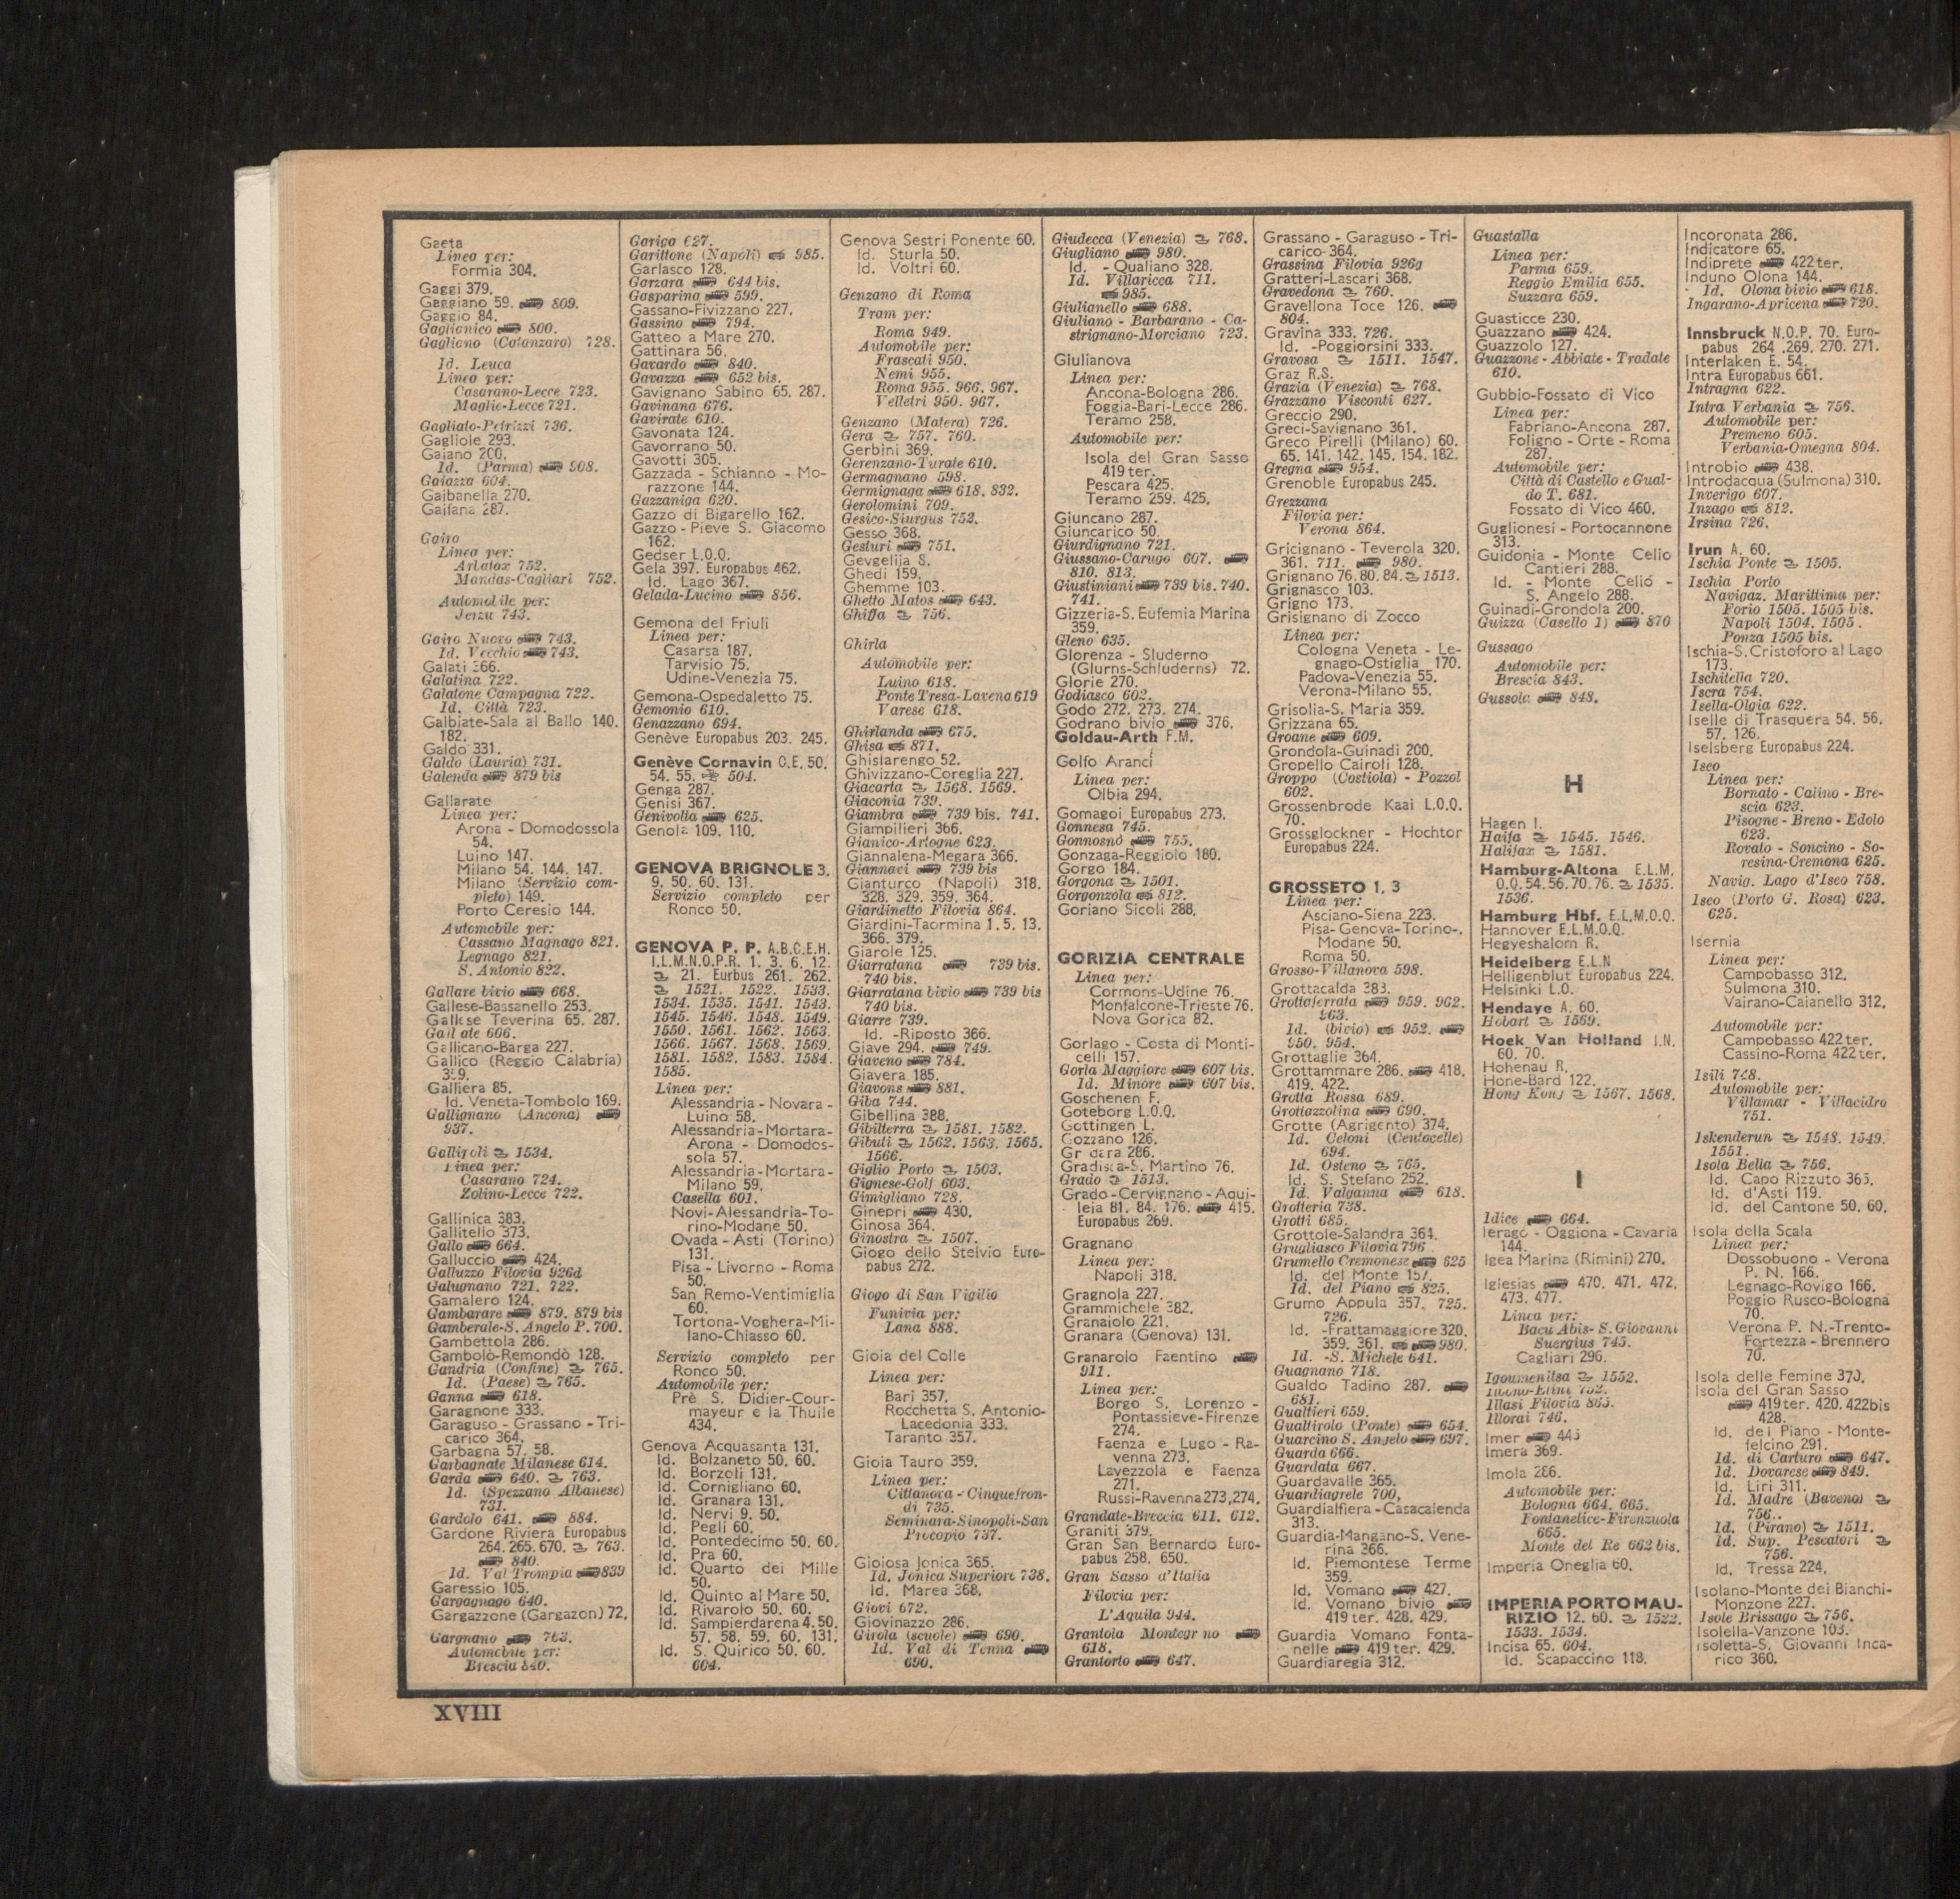 Gaeta
Linea per:
Formia 304.
Gaggi 379.
Gaggiano 59. 809.
Gaggio 84.
Gaglianico 800.
Gagliano (Catanzaro) 728.
Id. Leuca
Linea per:
Casarano-Lecce 723.
Maglie-Lecce 721.
Gagliato-Petrizzi 736.
Gagliole 293.
Gaiano 200.
Id. (Parma) 908.
Gaiazza 604.
Gaibanella 270.
Gaifana 287.
Gairo
Linea per:
Arbatax 752.
Mandas-Cagliari 752.
Automobile per:
Jerzu 743.
Gairo Nuovo 743.
Id. Vecchio 743.
Galati 366.
Galatina 722.
Galatone Campagna 722.
Id. Città 723.
Galbiate-Sala al Ballo 140.
182.
Galdo 331.
Galdo (Lauria) 731.
Galenda 879 bis
Gallarate
Linea per:
Arona - Domodossola
54.
Luino 147.
Milano 54. 144. 147.
Milano (Servizio com-
pleto) 149.
Porto Ceresio 144.
Automobile per:
Cassano Magnago 821.
Legnago 821.
S. Antonio 822.
Gallare bivio 668.
Gallese-Bassanello 253.
Gallese Teverina 65. 287.
Galliate 606.
Gallicano-Barga 227.
Gallico (Reggio Calabria)
359.
Galliera 85.
Id. Veneta-Tombolo 169.
Gallignano (Ancona)
937.
Gallipoli 1534.
Linea per:
Casarano 724.
Zolino-Lecce 722.
Gallinica 383.
Gallitello 373.
Gallo 664.
Galluccio 424.
Galluzzo Filovia 926d
Galugnano 721. 722.
Gamalero 124.
Gambarare 879. 879 bis
Gamberale-S. Angelo P. 700.
Gambettola 286.
Gambolò-Remondò 128.
Gandria (Confine) 765.
Id. (Paese) 765.
Ganna 618.
Garagnone 333.
Garaguso - Grassano - Tri-
carico 364.
Garbagna 57. 58.
Garbagnate Milanese 614.
Garda 640. 763.
Id. (Spezzano Albanese)
731.
Gardolo 641. 884.
Gardone Riviera Europabus
264. 265. 670. 763.
840.
Id. Val Trompia 839
Garessio 105.
Gargagnago 640.
Gargazzone (Gargazon) 72.
Gargnano 763.
Automobile per:
Brescia 840.
Gariga 627.
Garittone (Napoli) 985.
Garlasco 128.
Garzara 644 bis.
Gasparina 599.
Gassano-Fivizzano 227.
Gassino 794.
Gatteo a Mare 270.
Gattinara 56.
Gavardo 840.
Gavazza 652 bis.
Gavignano Sabino 65. 287.
Gavinana 676.
Gavirate 610.
Gavonata 124.
Gavorrano 50.
Gavotti 305.
Gazzada - Schianno - Mo-
razzone 144.
Gazzaniga 620.
Gazzo di Bigarello 162.
Gazzo - Pieve S. Giacomo
162.
Gedser L.O.Q.
Gela 397. Europabus 462.
Id. Lago 367.
Gelada-Lucino 856.
Gemona del Friuli
Linea per:
Casarsa 187.
Tarvisio 75.
Udine-Venezia 75.
Gemona-Ospedaletto 75.
Gemonio 610.
Genazzano 694.
Genève Europabus 203. 245.
Genève Cornavin C.E. 50.
54. 55. 504.
Genga 287.
Genisi 367.
Genivolta 625.
Genola 109. 110.
GENOVA BRIGNOLE 3.
9. 50. 60. 131.
Servizio completo per
Ronco 50.
GENOVA P. P. A.B.C.E.H.
I.L.M.N.O.P.R. 1. 3. 6. 12.
21. Eurbus 261. 262.
1521. 1522. 1533.
1534. 1535. 1541. 1543.
1545. 1546. 1548. 1549.
1550. 1561. 1562. 1563.
1566. 1567. 1568. 1569.
1581. 1582. 1583. 1584.
1585.
Linea per:
Alessandria - Novara -
Luino 58.
Alessandria-Mortara-
Arona - Domodos-
sola 57.
Alessandria-Mortara-
Milano 59.
Casella 601.
Novi-Alessandria-To-
rino-Modane 50.
Ovada - Asti (Torino)
131.
Pisa - Livorno - Roma
50.
San Remo-Ventimiglia
60.
Tortona-Voghera-Mi-
lano-Chiasso 60.
Servizio completo per
Ronco 50.
Automobile per:
Prè S. Didier-Cour-
mayeur e la Thuile
434.
Genova Acquasanta 131.
Id. Bolzaneto 50. 60.
Id. Borzoli 131.
Id. Cornigliano 60.
Id. Granara 131.
Id. Nervi 9. 50.
Id. Pegli 60.
Id. Pontedecimo 50. 60.
Id. Pra 60.
Id. Quarto dei Mille
50.
Id. Quinto al Mare 50.
Id. Rivarolo 50. 60.
Id. Sampierdarena 4. 50.
57. 58. 59. 60. 131.
Id. S. Quirico 50. 60.
664.
Genova Sestri Ponente 60.
Id. Sturla 50.
Id. Voltri 60.
Genzano di Roma
Tram per:
Roma 949.
Automobile per:
Frascati 950.
Nemi 955.
Roma 955. 966. 967.
Velletri 950. 967.
Genzano (Matera) 726.
Gera 757. 760.
Gerbini 369.
Gerenzano-Turate 610.
Germagnano 598.
Germignaga 618. 832.
Gerolomini 709.
Gesico-Siurgus 752.
Gesso 368.
Gesturi 751.
Gevgelija S.
Ghedi 159.
Ghemme 103.
Ghetto Matos 643.
Ghiffa 756.
Ghirla
Automobile per:
Luino 618.
Ponte Tresa-Lavena 619
Varese 618.
Ghirlanda 675.
Ghisa 871.
Ghislarengo 52.
Ghivizzano-Coreglia 227.
Giacarta 1568. 1569.
Giaconia 739.
Giambra 739 bis. 741.
Giampilieri 366.
Gianico-Artogne 623.
Giannalena-Megara 366.
Giannavi 739 bis
Gianturco (Napoli) 318.
328. 329. 359. 364.
Giardinetto Filovia 864.
Giardini-Taormina 1. 5. 13.
366. 379.
Giarole 125.
Giarratana 739 bis.
740 bis.
Giarratana bivio 739 bis
740 bis.
Giarre 739.
Id. -Riposto 366.
Giave 294. 749.
Giaveno 784.
Giavera 185.
Giavons 881.
Giba 744.
Gibellina 388.
Gibilterra 1581. 1582.
Gibuti 1562. 1563. 1565.
1566.
Giglio Porto 1503.
Gignese-Golf 603.
Gimigliano 728.
Ginepri 430.
Ginosa 364.
Ginostra 1507.
Giogo dello Stelvio Euro-
pabus 272.
Giogo di San Vigilio
Funivia per:
Lana 888.
Gioia del Colle
Linea per:
Bari 357.
Rocchetta S. Antonio-
Lacedonia 333.
Taranto 357.
Gioia Tauro 359.
Linea per:
Cittanova - Cinquefron-
di 735.
Seminara-Sinopoli-San
Procopio 737.
Gioiosa Jonica 365.
Id. Jonica Superiore 738.
Id. Marea 368.
Giovi 672.
Giovinazzo 286.
Girola (scuole) 690.
Id. Val di Tenna
690.
Giudecca (Venezia) 768.
Giugliano 980.
Id. - Qualiano 328.
Id. Villaricca 711.
985.
Giulianello 688.
Giuliano - Barbarano - Ca-
strignano-Morciano 723.
Giulianova
Linea per:
Ancona-Bologna 286.
Foggia-Bari-Lecce 286.
Teramo 258.
Automobile per:
Isola del Gran Sasso
419 ter.
Pescara 425.
Teramo 259. 425.
Giuncano 287.
Giuncarico 50.
Giurdignano 721.
Giussano-Carugo 607.
810. 813.
Giustiniani 739 bis. 740.
741.
Gizzeria-S. Eufemia Marina
359.
Gleno 635.
Glorenza - Sluderno
(Glurns-Schluderns) 72.
Glorie 270.
Godiasco 602.
Godo 272. 273. 274.
Godrano bivio 376.
Goldau-Arth F.M.
Golfo Aranci
Linea per:
Olbia 294.
Gomagoi Europabus 273.
Gonnesa 745.
Gonnosnò 755.
Gonzaga-Reggiolo 180.
Gorgo 184.
Gorgona 1501.
Gorgonzola 812.
Goriano Sicoli 288.
GORIZIA CENTRALE
Linea per:
Cormons-Udine 76.
Monfalcone-Trieste 76.
Nova Gorica 82.
Gorlago - Costa di Monti-
celli 157.
Gorla Maggiore 607 bis.
Id. Minore 607 bis.
Goschenen F.
Goteborg L.O.Q.
Gottingen L.
Gozzano 126.
Gradara 286.
Gradisca-S. Martino 76.
Grado 1513.
Grado - Cervignano - Aqui-
leia 81. 84. 176. 415.
Europabus 269.
Gragnano
Linea per:
Napoli 318.
Gragnola 227.
Grammichele 382.
Granaiolo 221.
Granara (Genova) 131.
Granarolo Faentino
911.
Linea per:
Borgo S. Lorenzo -
Pontassieve-Firenze
274.
Faenza e Lugo - Ra-
venna 273.
Lavezzola e Faenza
271.
Russi-Ravenna 273, 274.
Grandate-Breccia 611. 612.
Graniti 379.
Gran San Bernardo Euro-
pabus 258. 650.
Gran Sasso d'Italia
Filovia per:
L'Aquila 944.
Grantola Montegrino
618.
Grantorto 647.
Grassano - Garaguso - Tri-
carico 364.
Grassina Filovia 926g
Gratteri-Lascari 368.
Gravedona 760.
Gravellona Toce 126.
804.
Gravina 333. 726.
Id. -Poggiorsini 333.
Gravosa 1511. 1547.
Graz R.S.
Grazia (Venezia) 768.
Grazzano Visconti 627.
Greccio 290.
Greci-Savignano 361.
Greco Pirelli (Milano) 60.
65. 141. 142. 145. 154. 182.
Gregna 954.
Grenoble Europabus 245.
Grezzana
Filovia per:
Verona 864.
Gricignano - Teverola 320.
361. 711. 980.
Grignano 76. 80. 84. 1513.
Grignasco 103.
Grigno 173.
Grisignano di Zocco
Linea per:
Cologna Veneta - Le-
gnago-Ostiglia 170.
Padova-Venezia 55.
Verona-Milano 55.
Grisolia-S. Maria 359.
Grizzana 65.
Groane 609.
Grondola-Guinadi 200.
Gropello Cairoli 128.
Groppo (Costiola) - Pozzol
602.
Grossenbrode Kaai L.O.Q.
70.
Grossglockner - Hochtor
Europabus 224.
GROSSETO 1, 3
Linea per:
Asciano-Siena 223.
Pisa-Genova-Torino-.
Modane 50.
Roma 50.
Grosso-Villanova 598.
Grottacalda 383.
Grottaferrata 959. 962.
963.
Id. (bivio) 952.
950. 954.
Grottaglie 364.
Grottammare 286. 418.
419. 422.
Grotta Rossa 689.
Grottazzolina 690.
Grotte (Agrigento) 374.
Id. Celoni (Centocelle)
694.
Id. Osteno 765.
Id. S. Stefano 252.
Id. Valganna 618.
Grotteria 738.
Grotti 685.
Grottole-Salandra 364.
Grugliasco Filovia 796
Grumello Cremonese 625
Id. del Monte 157.
Id. del Piano 825.
Grumo Appula 357. 725.
726.
Id. -Frattamaggiore 320.
359. 361. 980.
Id. -S. Michele 641.
Guagnano 718.
Gualdo Tadino 287.
681.
Gualtieri 659.
Gualtirolo (Ponte) 654.
Guarcino S. Angelo 697.
Guarda 666.
Guardata 667.
Guardavalle 365.
Guardiagrele 700.
Guardialfiera - Casacalenda
313.
Guardia-Mangano-S. Vene-
rina 366.
Id. Piemontese Terme
359.
Id. Vomano 427.
Id. Vomano bivio
419 ter. 428. 429.
Guardia Vomano Fonta-
nelle 419 ter. 429.
Guardiaregia 312.
Guastalla
Linea per:
Parma 659.
Reggio Emilia 655.
Suzzara 659.
Guasticce 230.
Guazzano 424.
Guazzolo 127.
Guazzone - Abbiate - Tradate
610.
Gubbio-Fossato di Vico
Linea per:
Fabriano-Ancona 287.
Foligno - Orte - Roma
287.
Automobile per:
Città di Castello e Gual-
do T. 681.
Fossato di Vico 460.
Guglionesi - Portocannone
313.
Guidonia - Monte Celio
Cantieri 288.
Id. - Monte Celio -
S. Angelo 288.
Guinadi-Grondola 200.
Guizza (Casello 1) 870
Gussago
Automobile per:
Brescia 843.
Gussola 848.
H
Hagen I.
Haifa 1545. 1546.
Halifax 1581.
Hamburg-Altona E.L.M.
O.Q. 54. 56. 70. 76. 1535.
1536.
Hamburg Hbf. E.L.M.O.Q.
Hannover E.L.M.O.Q.
Hegyeshalom R.
Heidelberg E.L.N
Heiligenblut Europabus 224.
Helsinki L.O.
Hendaye A. 60.
Hobart 1569.
Hoek Van Holland I.N.
60. 70.
Hohenau R.
Hone-Bard 122.
Hong Kong 1567. 1568.
I
Idice 664.
Ierago - Oggiona - Cavaria
144.
Igea Marina (Rimini) 270.
Iglesias 470. 471. 472.
473. 477.
Linea per:
Bacu Abis- S. Giovanni
Suergius 745.
Cagliari 296.
Igoumenitsa 1552.
Illasi Filovia 865.
Illorai 746.
Imer 445
Imera 369.
Imola 286.
Automobile per:
Bologna 664. 665.
Fontanelice-Firenzuola
665.
Monte del Re 662 bis.
Imperia Oneglia 60.
IMPERIA PORTO MAU-
RIZIO 12. 60. 1522.
1533. 1534.
Incisa 65. 604.
Id. Scapaccino 118.
Incoronata 286.
Indicatore 65.
Indiprete 422 ter.
Induno Olona 144.
Id. Olona bivio 618.
Ingarano-Apricena 720.
Innsbruck N.O.P. 70. Euro-
pabus 264. 269. 270. 271.
Interlaken E. 54.
Intra Europabus 661.
Intragna 622.
Intra Verbania 756.
Automobile per:
Premeno 605.
Verbania-Omegna 804.
Introbio 438.
Introdacqua (Sulmona) 310.
Inverigo 607.
Inzago 812.
Irsina 726.
Irun A. 60.
Ischia Ponte 1505.
Ischia Porto
Navigaz. Marittima per:
Forio 1505. 1505 bis.
Napoli 1504. 1505.
Ponza 1505 bis.
Ischia-S. Cristoforo al Lago
173.
Ischitella 720.
Iscra 754.
Isella-Olgia 622.
Iselle di Trasquera 54. 56.
57. 126.
Iselsberg Europabus 224.
Iseo
Linea per:
Bornato - Calino - Bre-
scia 623.
Pisogne - Breno - Edolo
623.
Rovato - Soncino - So-
resina-Cremona 625.
Navig. Lago d'Iseo 758.
Iseo (Porto G. Rosa) 623.
625.
Isernia
Linea per:
Campobasso 312.
Sulmona 310.
Vairano-Caianello 312.
Automobile per:
Campobasso 422 ter.
Cassino-Roma 422 ter.
Isili 748.
Automobile per:
Villamar - Villacidro
751.
Iskenderun 1548. 1549.
1551.
Isola Bella 756.
Id. Capo Rizzuto 365.
Id. d'Asti 119.
Id. del Cantone 50. 60.
Isola della Scala
Linea per:
Dossobuono - Verona
P. N. 166.
Legnago-Rovigo 166.
Poggio Rusco-Bologna
70.
Verona P. N.-Trento-
Fortezza - Brennero
70.
Isola delle Femine 370.
Isola del Gran Sasso
419 ter. 420. 422 bis
428.
Id. del Piano - Monte-
felcino 291.
Id. di Carturo 647.
Id. Dovarese 849.
Id. Liri 311.
Id. Madre (Baveno)
756..
Id. (Pirano) 1511.
Id. Sup. Pescatori
756.
Id. Tressa 224.
Isolano-Monte dei Bianchi-
Monzone 227.
Isole Brissago 756.
Isolella-Vanzone 103.
Isoletta-S. Giovanni Inca-
rico 360.
XVIII